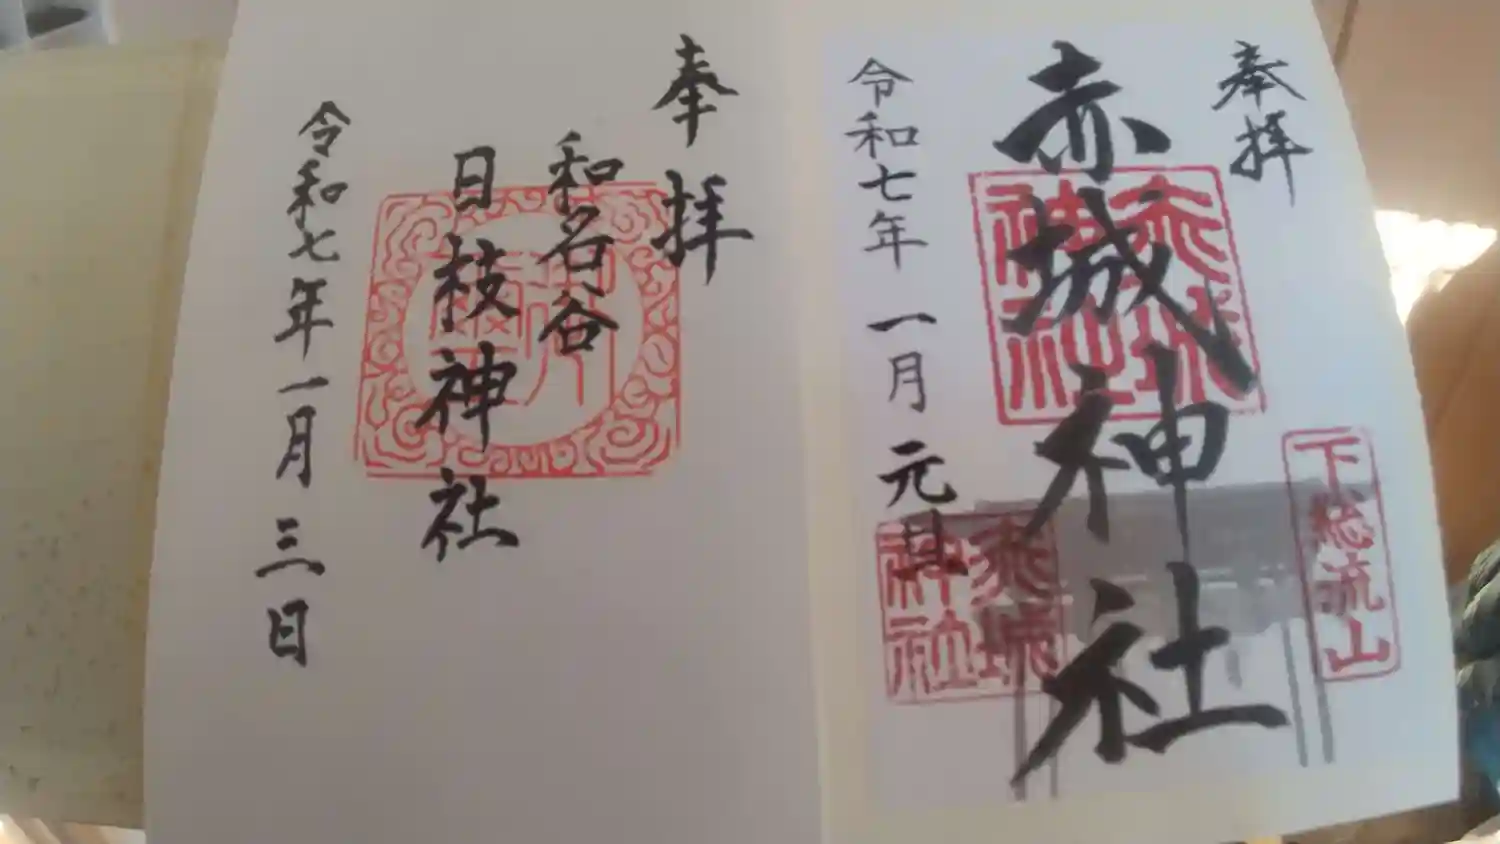 奉拝
赤城神社
赤城神社
下総流山
令和七年一月元旦
赤城神社
奉拝
和名谷
日枝神社
令和七年一月三日